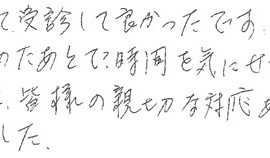 て受診して良かったです。
めたあとで?時間を気にせ
、皆様の親切な対応あ
した。